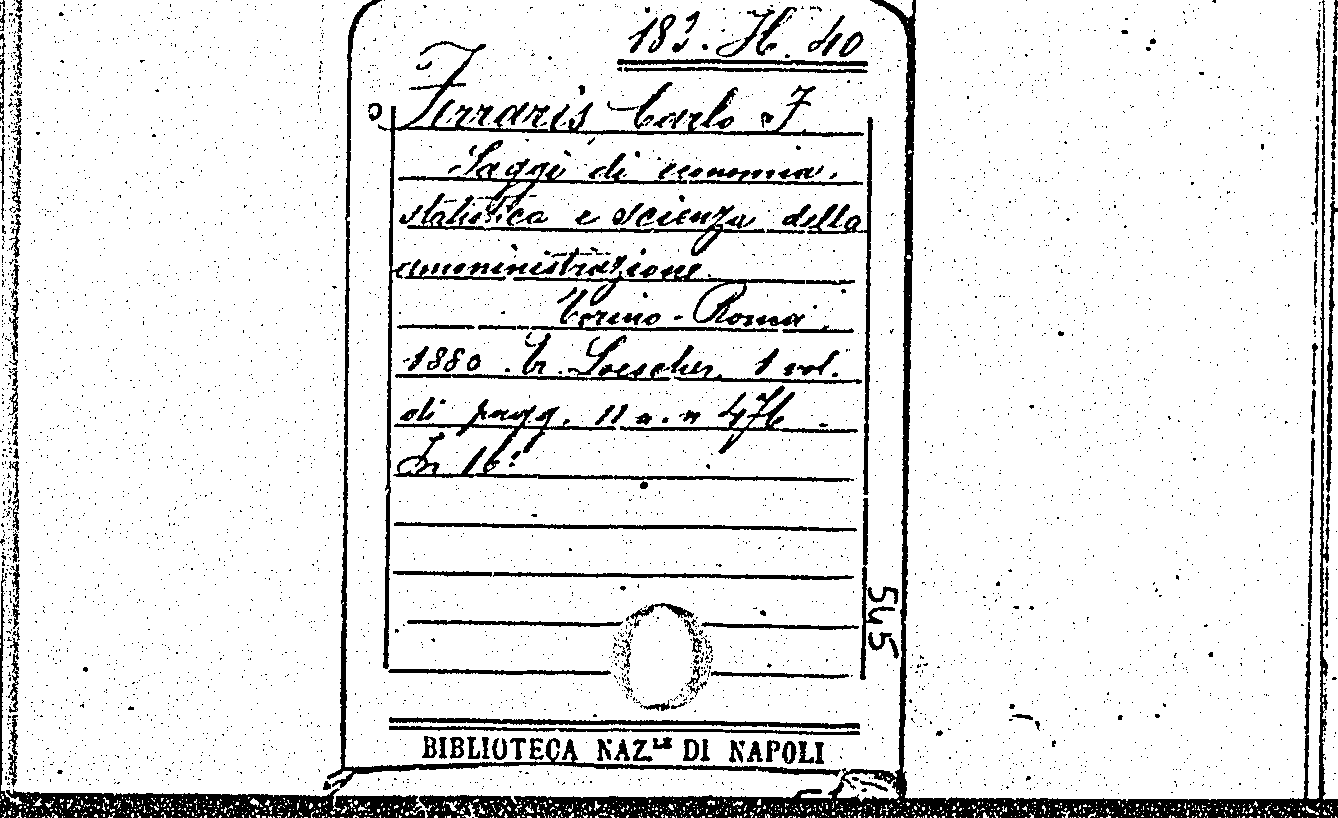 182. H. 40
Ferraris Carlo F.
Saggi di economia,
statistica e scienza della
amministrazione.
Torino - Roma,
1880. E. Loescher, 1 vol.
di pagg. 476
In 16º
545
BIBLIOTECA NAZ.LE DI NAPOLI